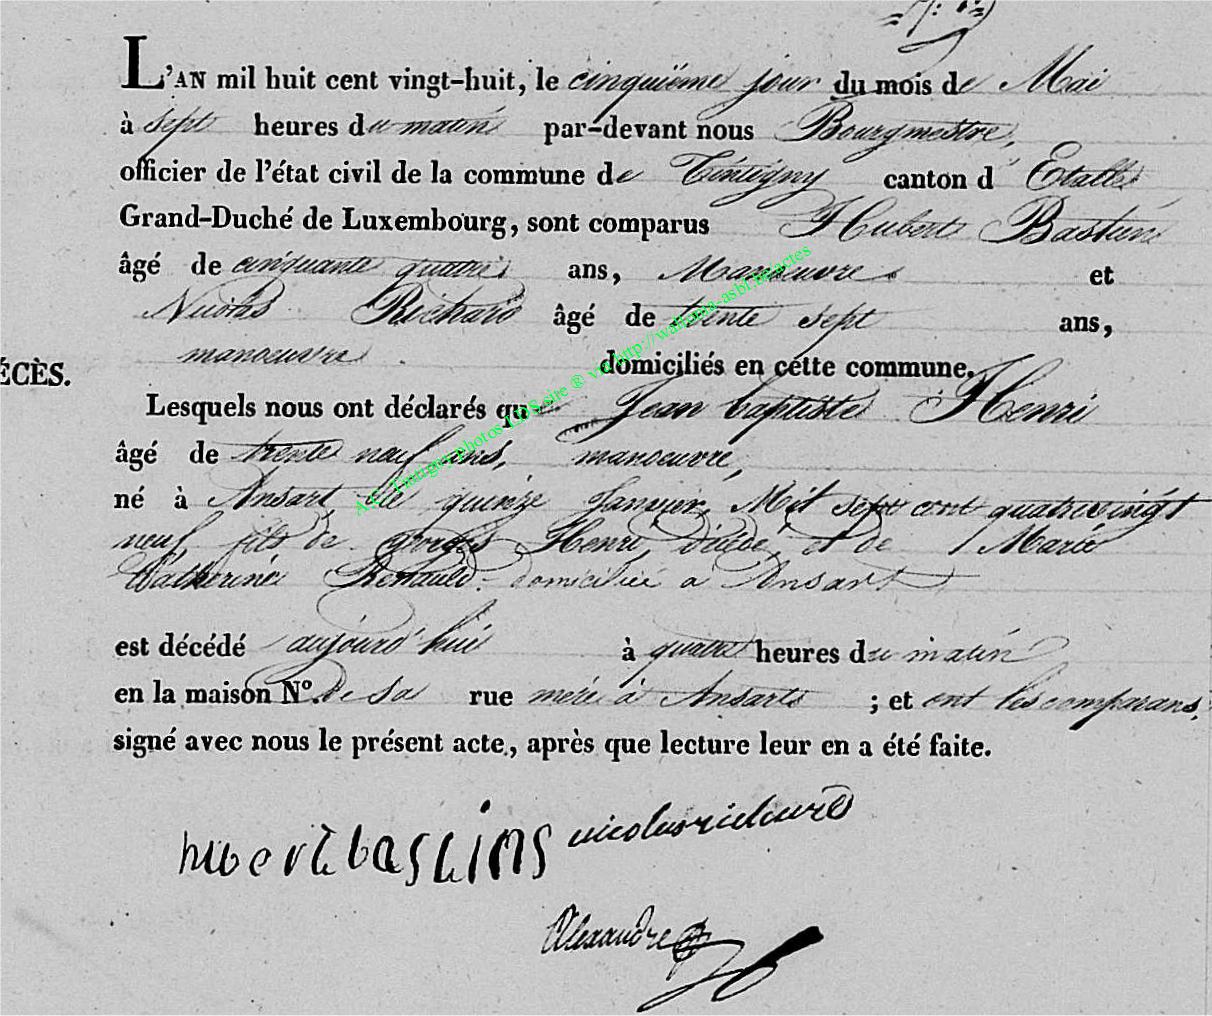 L'AN mil huit cent vingt-huit, le cinquième jour du mois de Mai
à sept heures du matin par-devant nous Bourgmestre,
officier de l'état civil de la commune de Tintigny canton d'Etalle
Grand-Duché de Luxembourg, sont comparus Hubert Bastin
âgé de cinquante quatre ans, Manoeuvre et
Nicolas Richard âgé de trente sept ans,
manoeuvre domiciliés en cette commune.
ÉCÈS.
Lesquels nous ont déclarés que Jean baptiste Henri
âgé de trente neuf ans, manoeuvre,
né à Ansart, le quinze Janvier Mil sept cent quatrevingt
neuf, fils de Henri, décédé, et de Marie
Catherine Renauld domiciliée a Ansart
est décédé aujourd'hui à quatre heures du matin
en la maison N°. de sa rue mère à Ansart ; et ont les comparans,
signé avec nous le présent acte, après que lecture leur en a été faite.
hubert bastins nicolas richard
Alexandre
A.E. Tintigny photos LDS site ® via http://wallonia-asbl.be/actes